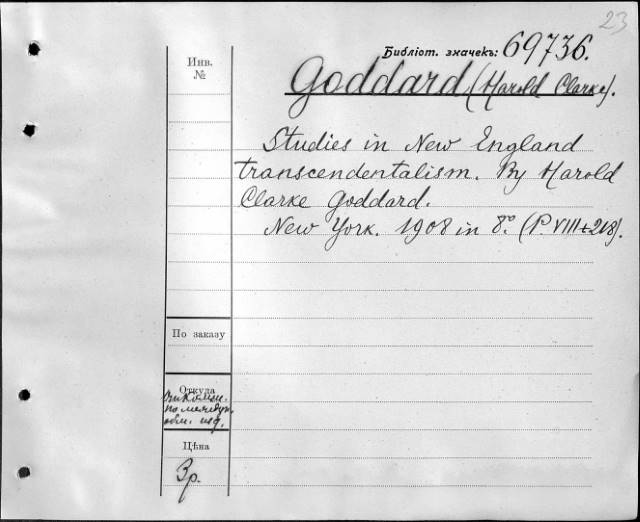 23
Библіот. значекъ: 69736.
Инв.
№
Goddard (Harold Clarke).
Studies in New England
transcendentalism. By Harold
Clarke Goddard.
New York. 1908 in 8º. (P. VIII+218).
По заказу
Откуда
по междун.
обм. изд.
Цѣна
3р.